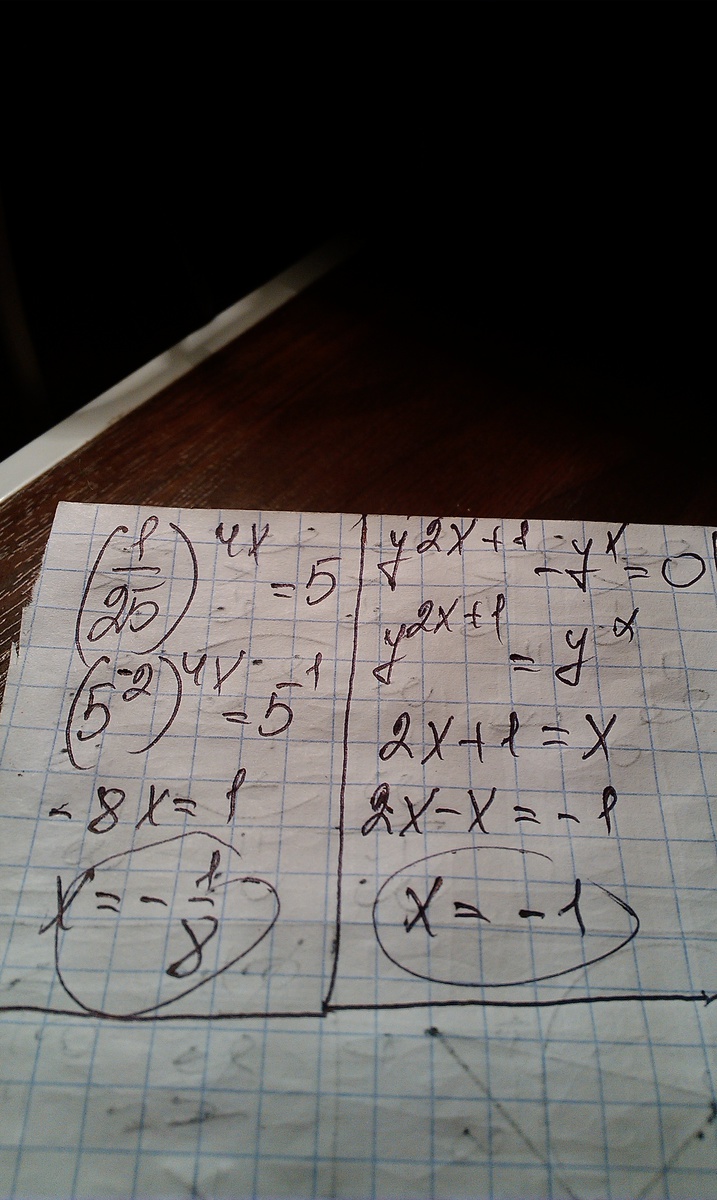 (1/25)^4x = 5
(5^-2)^4x = 5^1
-8x = 1
x = -1/8
y^2x+1 - y^x = 0
y^2x+1 = y^x
2x+1 = x
2x-x = -1
x = -1